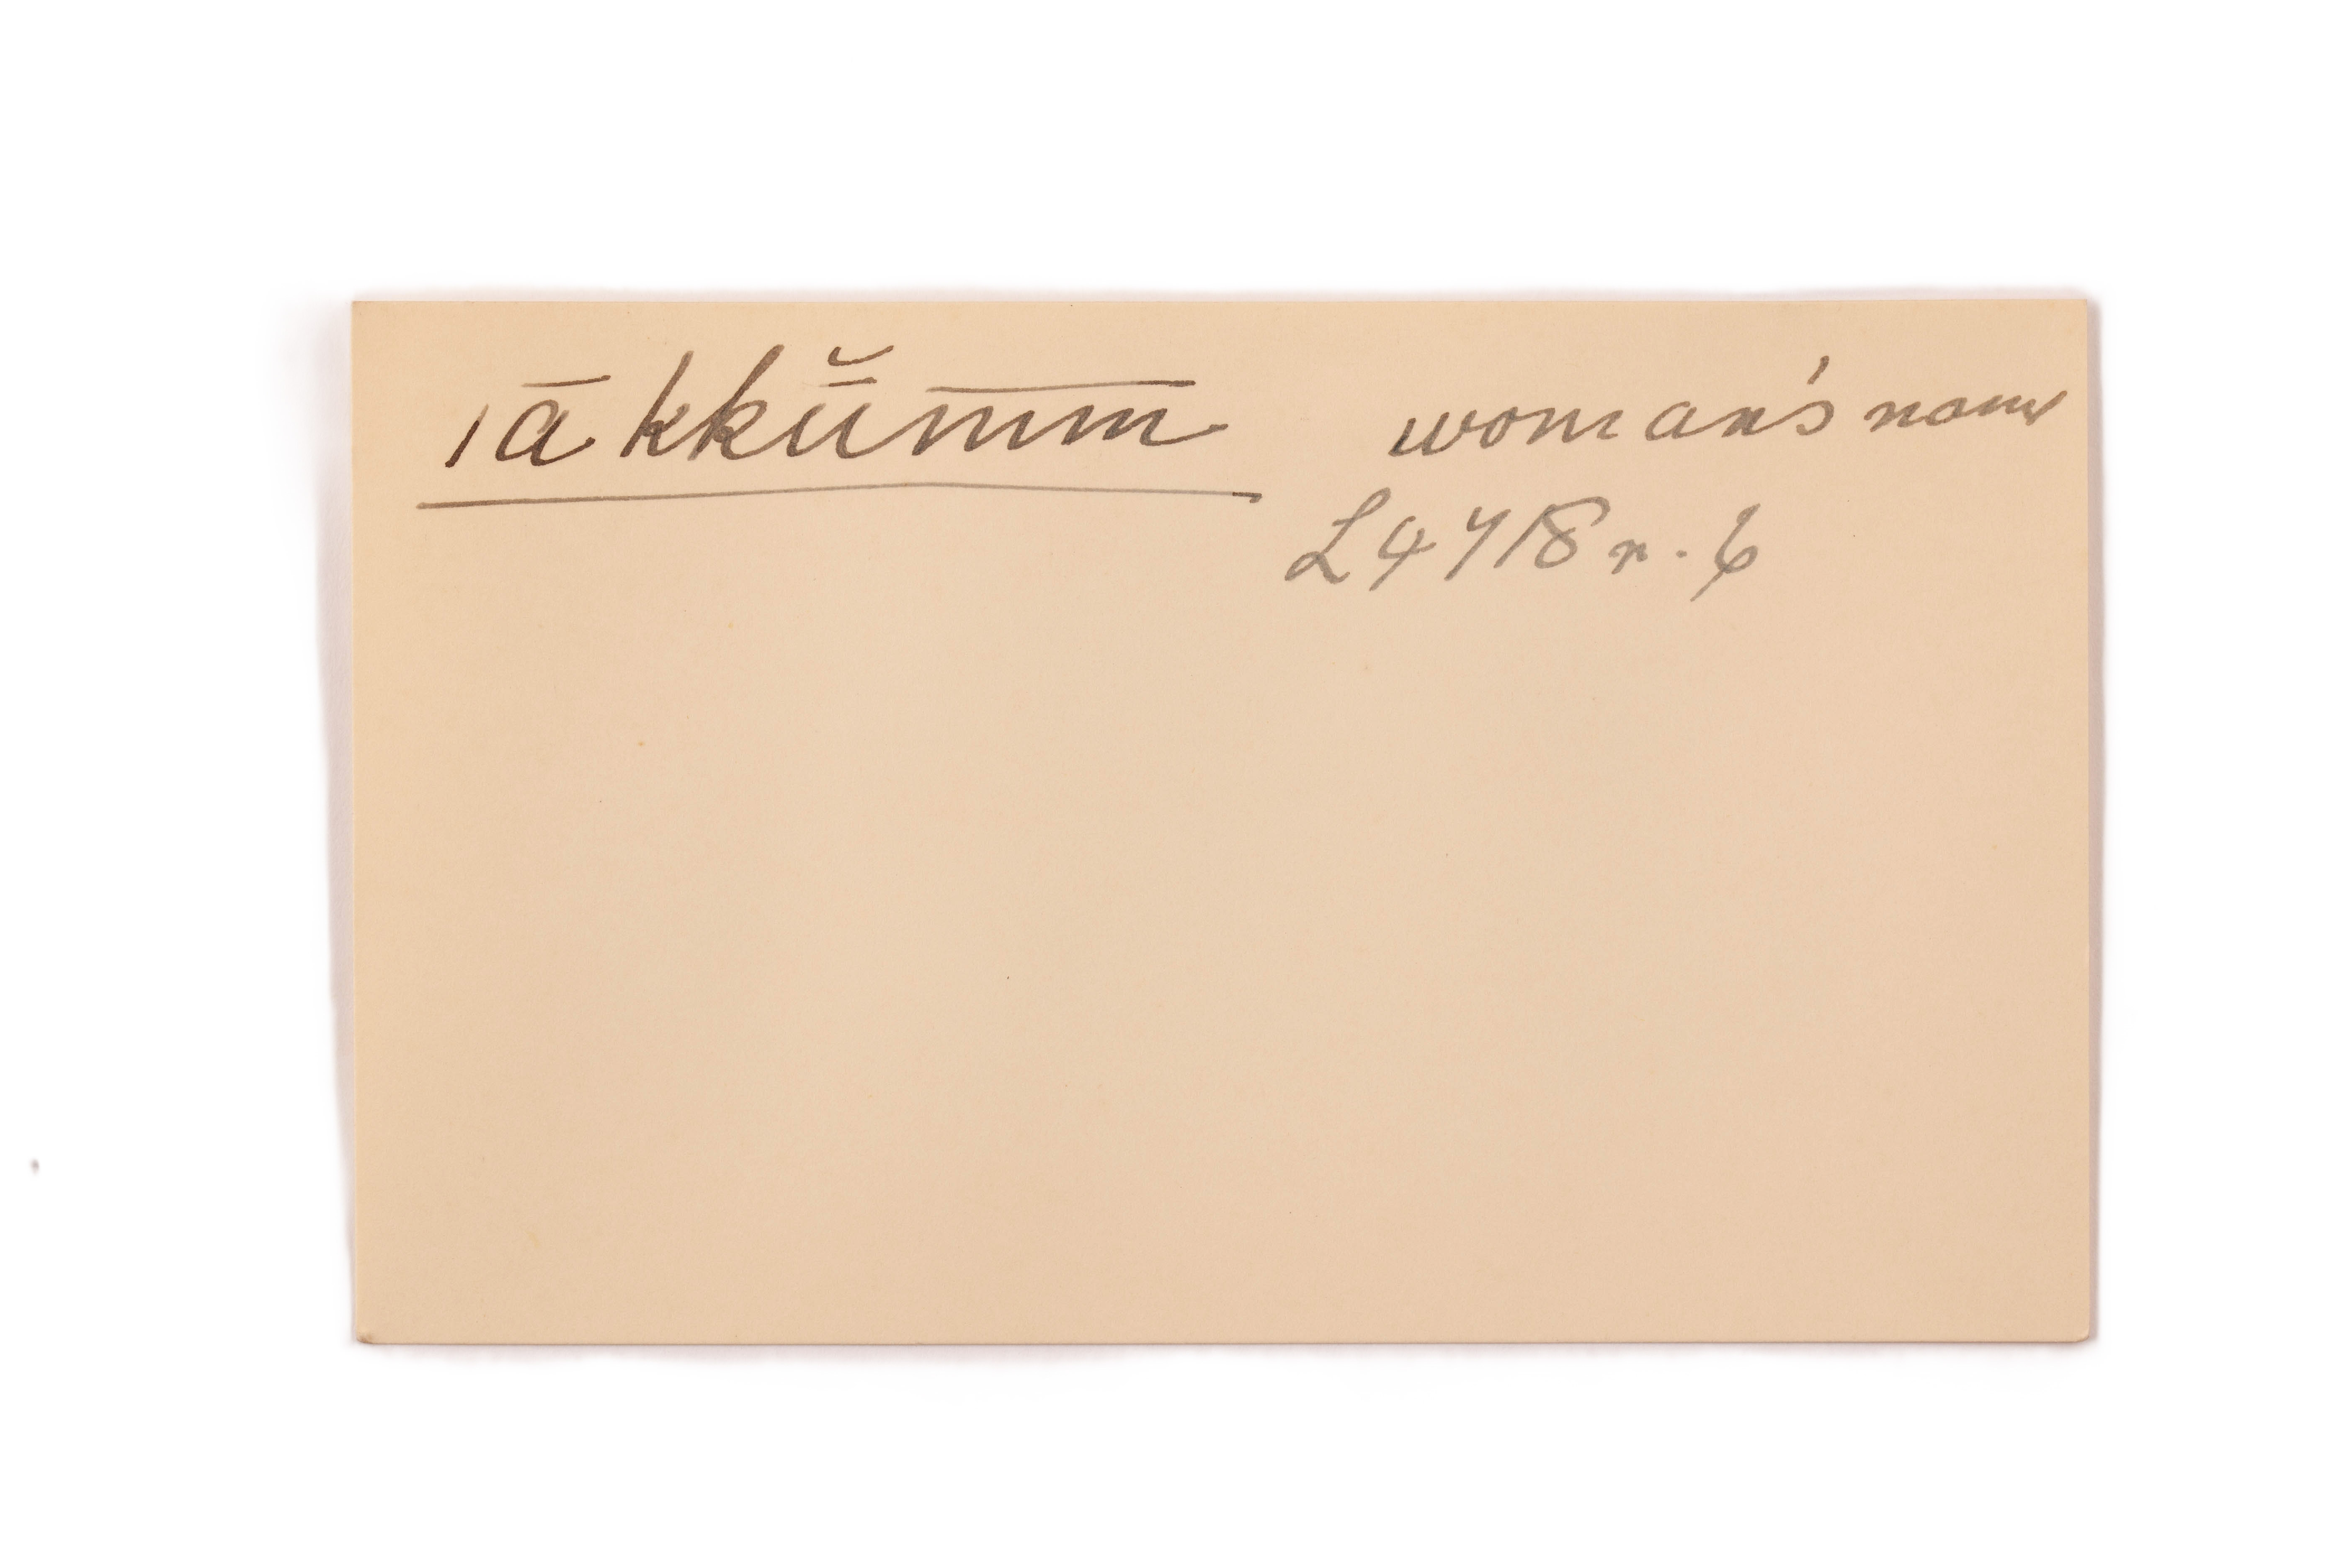 ıākkū̆m̅m̅ woman's name
L4718 n. 6